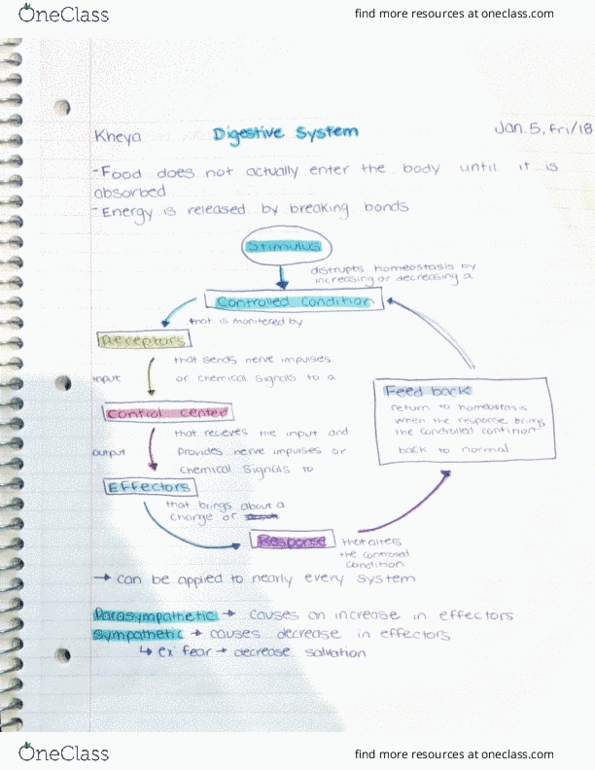 OneClass
find more resources at oneclass.com
Kheya
Digestive System
Jan. 5, Fri/18
-Food does not actually enter the body until it is
absorbed
-Energy is released by breaking bonds
Stimulus
distrupts homeostasis by
increasing or decreasing a
Controlled Condition
that is monitered by
Receptors
that sends nerve impulses
input
or chemical signals to a
Feed back
return to homeostasis
when the response brings
the controlled contition
back to normal
Control center
that recieves the input and
output
provides nerve impulses or
chemical signals to
Effectors
that brings about a
change or
Response
that alters
the controled
condition
→ can be applied to nearly every system
Parasympathetic → causes an increase in effectors
Sympathetic → causes decrease in effectors
↳ ex fear → decrease salvation
OneClass
find more resources at oneclass.com